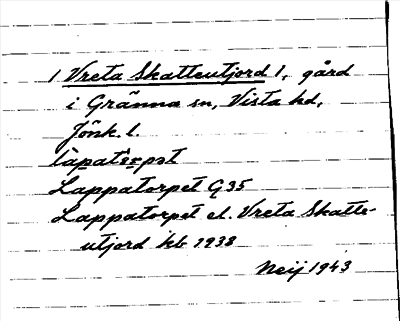 1 Vreta Skatteutjord 1, gård
i Gränna sn, Vista hd,
Jönk. l.
Lappatorpet G35
Lappatorpet el. Vreta Skatte-
utjord kb 1938
Neij 1943